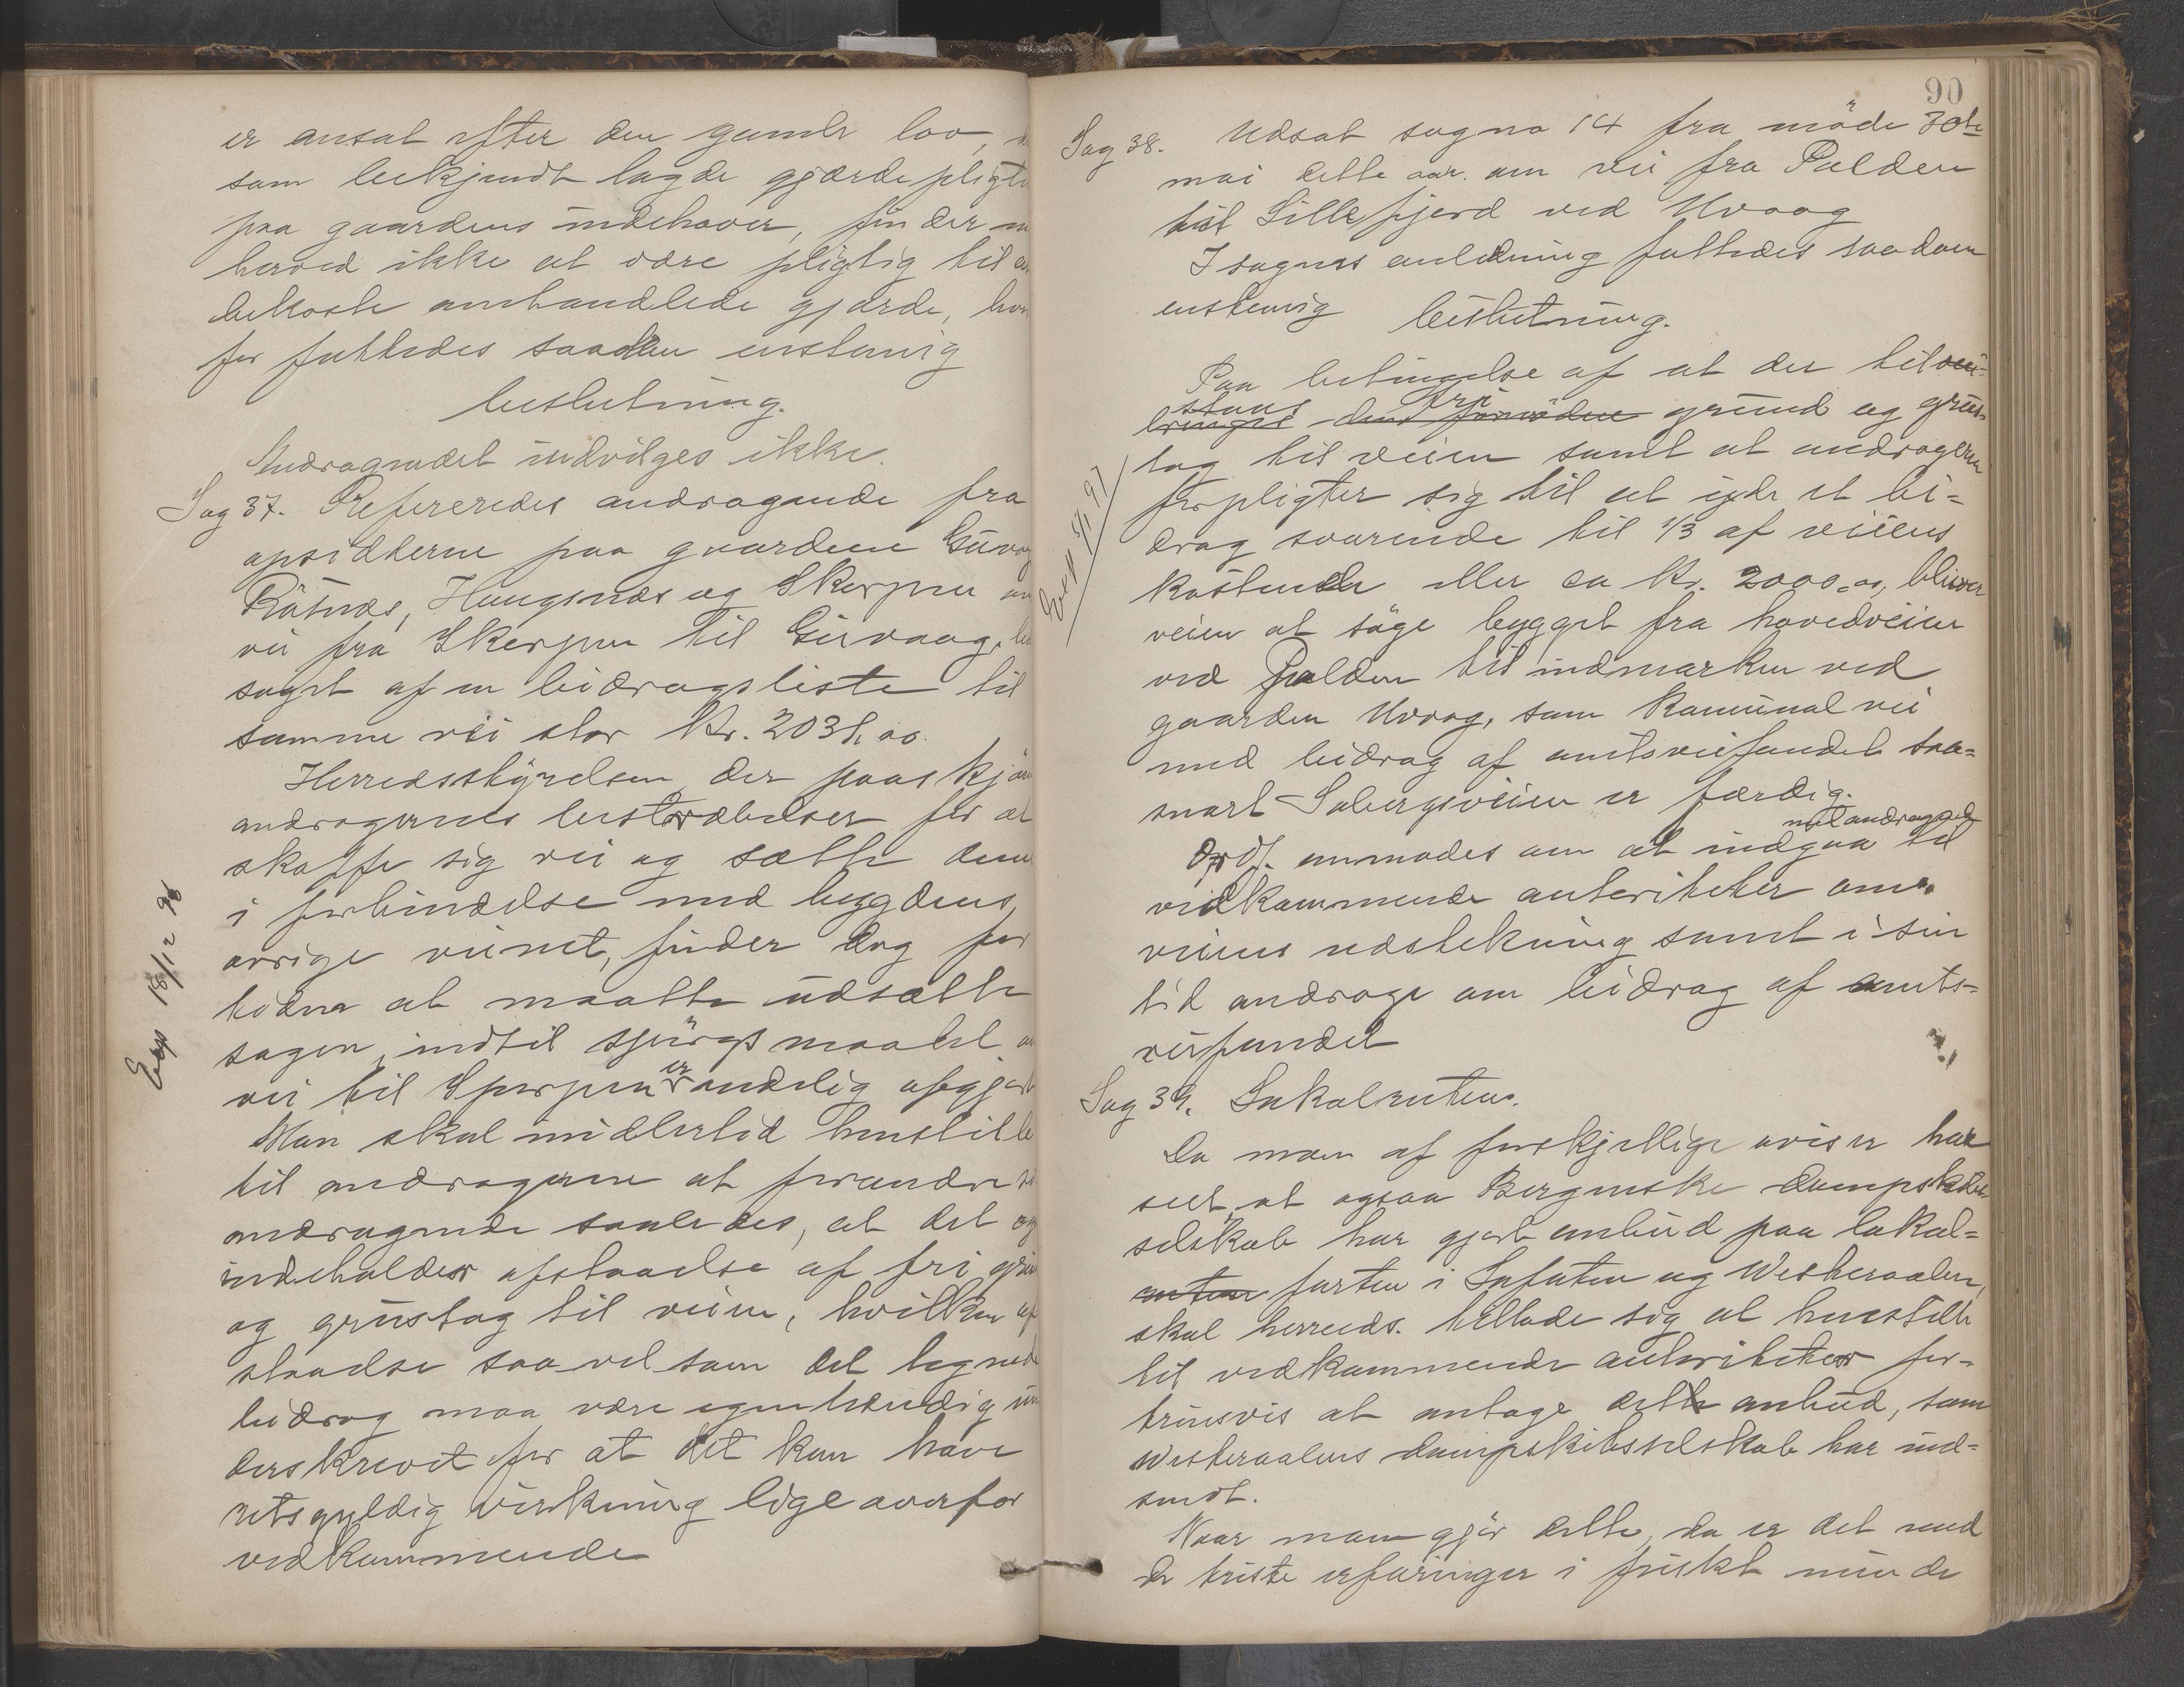 er ansat efter den gamle lov,
som beikjendt lagde gjærdepligte
paa gaardens indehaver, finder m
herved ikke at være pligtig til
bekoste omhandlede gjærde, hvor
for fattedes saadan enstemig
beslutning.
Andragendet indvilges ikke.
Sag 37. Refereredes andragende fra
opsidderne paa gaardene Gürvaag
Rötnæs, Haugsnæs og Skerpen om
vei fra Skerpen til Gürvaag, led
saget af en bidragsliste til
samme vei stor Kr. 2038,00.
Herredsstyrelsen der paaskjön
andragernes bestræbelser for at
skaffe sig vei og sætte dem
i forbindelse med bygdens
øvrige veinet, finder dog for
tiden at maatte udsætte
sagen, indtil spörgsmaalet om
vei til Skerpen er endelig afgjort
Man skal imidlertid henstille
til andragerne at forandre sit
andragende saaledes, at det og
indeholder afstaaelse af fri grün
og grüstag til veien, hvilken af
staaelse saavel som det tegnede
bidrag maa være egenhændig ün
derskrevet for at det kan have
retsgyldig virkning ligeoverfor
vedkommende
Exp 18/12 96
90
Sag 38. Udsat sag no 14 fra möde 30te
mai dette aar. om vei fra Polden
til Lillefjord ved Uvaag
I sagens anledning fattedes saadan
enstemig beslutning.
Paa betingelse af at der tilvei-
staaes fri
bringes den fornödne grund og grüs-
tag til veien samt at andragerne
forpligter sig til at yde et bi-
drag svarende til 1/3 af veiens
kostende eller ca Kr. 2000,00, bliver
veien at söge bygget fra hovedveien
ved Polden til indmarken ved
gaarden Uvaag, som Komunal vei
med bidrag af amtsveifondet saa-
snart Sabergsveien er færdig.
med andraget
Ordf. anmodes om at indgaa til
vedkommende autoriteter om
veiens udstekning samt i sin
tid andrage om bidrag af amts-
veifondet
Exp 5/1 97
Sag 39. Lokalrutens.
Da man af forskjellige aviser har
seet, at ogsaa Bergenske dampskibs
selskab har gjort anbud paa lokal-
ruten farten i Lofoten og Vesteraalen,
skal herreds. tillade sig at henstille
til vedkommende autoriteter for-
trinsvis at antage dette anbud, som
Vesteraalens dampskibsselskab har ind-
sendt.
Naar man gjör dette, da er det med
de triste erfaringer i friskt minde